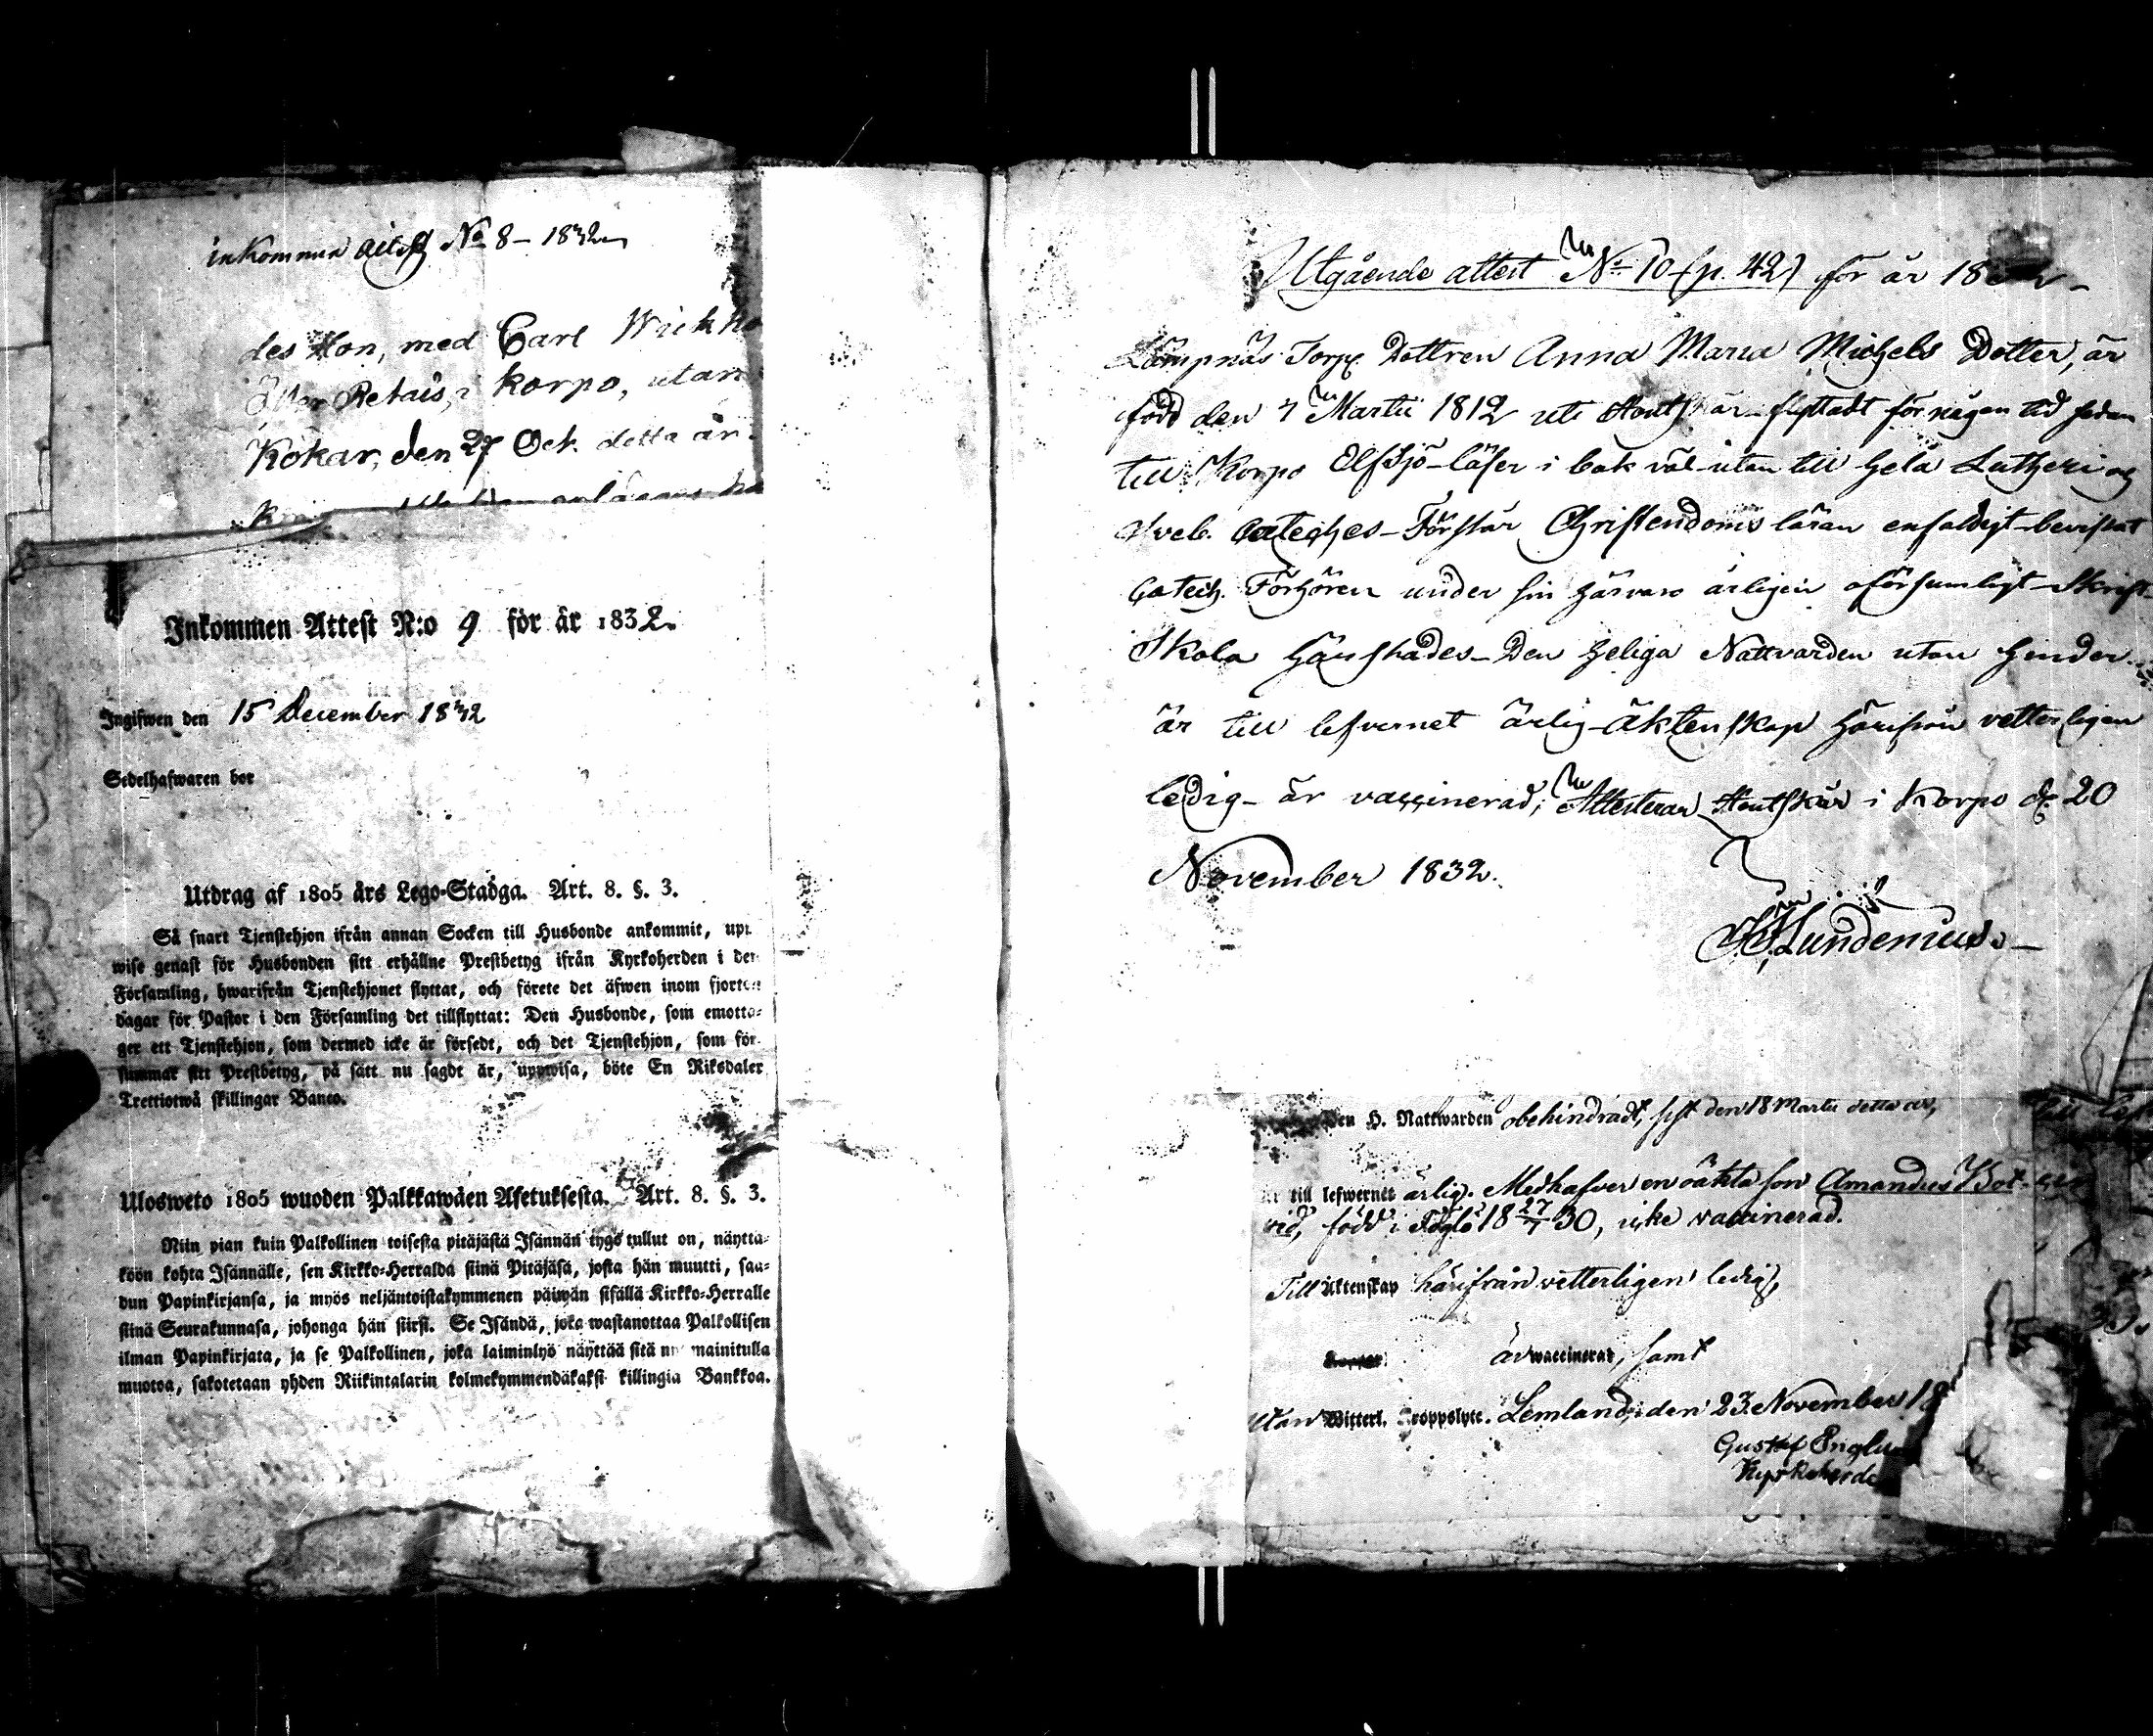 inkommen attest No 8 – 1832
des Hon, med Carl Wickho
Öster Retais, i Korpo, utan
Kökar, den 27 Oct. detta år
Inkommen Attest N:o 9 för år 1832.
Ingifwen den 15 December 1832
Sedelhafwaren bor
Utdrag af 1805 års Lego-Stadga. Art. 8. §. 3.
Så snart Tjenstehjon ifrån annan Socken till Husbonde ankommit, upp
wise genast för Husbonden sitt erhållne Prestbetyg ifrån Kyrkoherden i den
Församling, hwarifrån Tjenstehjonet flyttat, och förete det äfwen inom fjorton
dagar för Pastor i den Församling det tillflyttat: Den Husbonde, som emotta-
ger ett Tjenstehjon, som dermed icke är försedt, och det Tjenstehjon, som för
summar sitt Prestbetyg, på sätt nu sagdt är, uppwisa, böte En Riksdaler
Trettiotwå skillingar Banco.
Ulosweto 1805 wuoden Palkkawäen Asetuksesta. Art. 8. §. 3.
Niin pian kuin Palkollinen toisesta pitäjästä Isännän tygö tullut on, näyttä-
köön kohta Isännälle, sen Kirkko-Herralda siinä Pitäjäsä, josta hän muutti, saa-
dun Papinkirjansa, ja myös neljäntoistakymmenen päiwän sisällä Kirkko-Herralle
siinä Seurakunnasa, johonga hän siirsi. Se Isändä, joka wastanottaa Palkollisen
ilman Papinkirjata, ja se Palkollinen, joka laiminlyö näyttää sitä nyt mainitulla
muotoa, sakotetaan yhden Riikintalarin kolmekymmendäkaksi killingiä Bankkoa.
Utgående attest No 10 (p. 42) för år 18
Torp. Dottren Anna Maria Michels Dotter, är
född den 7 Martii 1812 uti Houtskär – flyttadt för någon tid sedan
till Korpo Elfsjö – läser i bok väl – utan till hela Lutheri og
Sveb. Cateches – Förstår Christendoms läran enfaldigt – bevistat
Catech. Förhören under sin härvaro årligen oförsumligt – Skrift
Skola härstädes – Den heliga Nattvarden utan hinder.
är till lefvernet ärlig – äktenskap härifrån vetterligen
ledig – är vaccinerad; Attesterar Houtskär i Korpo d. 20
November 1832.
Lundenius. –
Den H. Nattwarden obehindradt, sist den 18 Martii detta år,
är till lefwernet ärlig. Medhafver en oäkta son Amandus
vid, född i Föglö 18 27/7 30, icke vaccinerad.
Till Äktenskap härifrån vetterligen ledig,
är waccinerad, samt
utan Witterl. Kroppslyte. Lemland, den 23 November 18
Gustaf Englu
Kyrkoherde